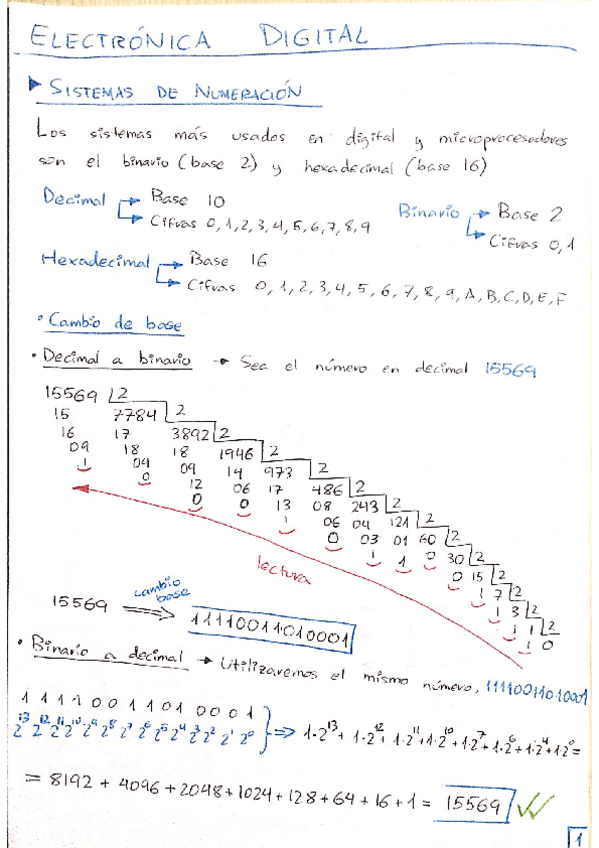 ELECTRÓNICA DIGITAL
SISTEMAS DE NUMERACIÓN
Los sistemas más usados en digital y microprocesadores
son el binario (base 2) y hexadecimal (base 16)
Decimal → Base 10
→ Cifras 0,1,2,3,4,5,6,7,8,9
Binario → Base 2
→ Cifras 0,1
Hexadecimal → Base 16
→ Cifras 0,1,2,3,4,5,6,7,8,9,A,B,C,D,E,F
• Cambio de base
• Decimal a binario → Sea el número en decimal 15569
15569 2
15 7784 2
16 17 3892 2
09 18 18 1946 2
1 04 09 14 973 2
0 12 06 17 486 2
0 0 13 08 243 2
1 06 04 121 2
0 03 01 60 2
1 1 0 30 2
0 15 2
1 7 2
1 3 2
1 1 2
1 0
lectura
15569 cambio base ⇒ 11110011010001
• Binario a decimal → Utilizaremos el mismo número, 11110011010001
1 1 1 1 0 0 1 1 0 1 0 0 0 1
2^13 2^12 2^11 2^10 2^9 2^8 2^7 2^6 2^5 2^4 2^3 2^2 2^1 2^0 } ⇒ 1·2^13 + 1·2^12 + 1·2^11 + 1·2^10 + 1·2^7 + 1·2^6 + 1·2^4 + 1·2^0 =
= 8192 + 4096 + 2048 + 1024 + 128 + 64 + 16 + 1 = 15569
1